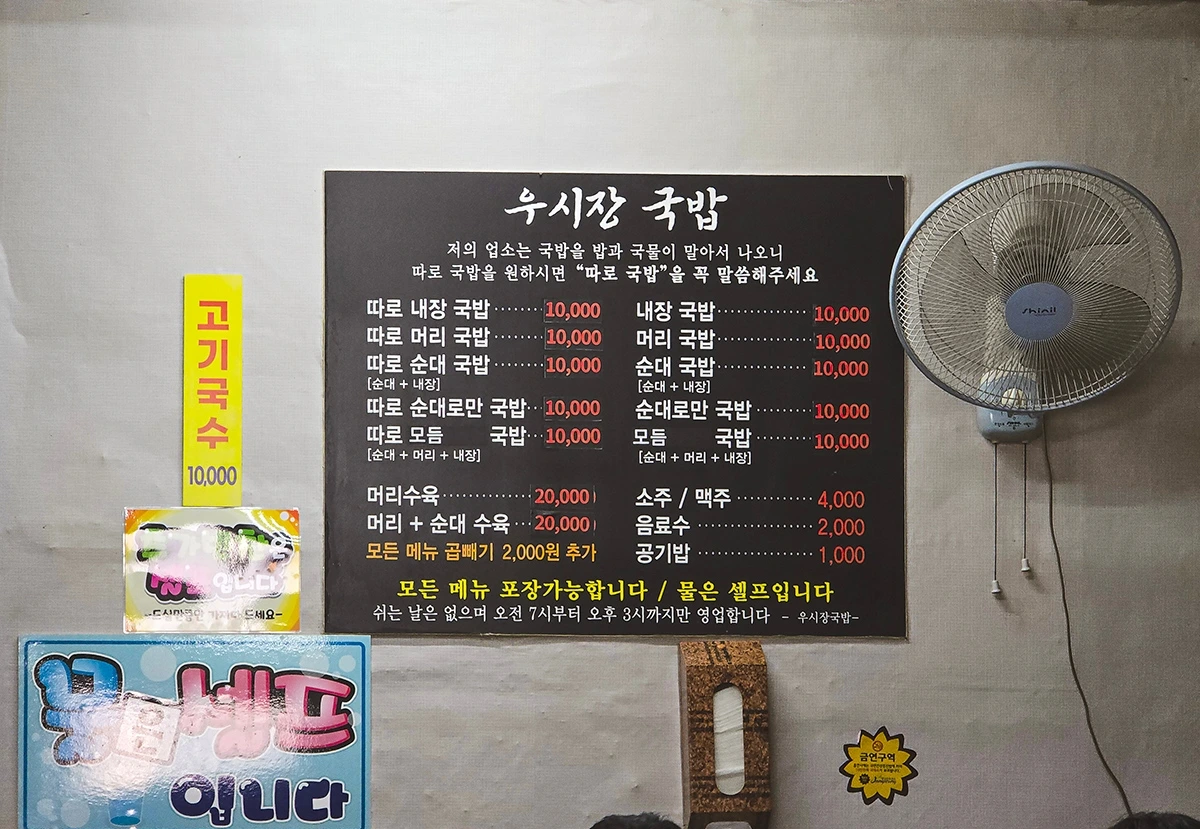 우시장 국밥
저의 업소는 국밥을 밥과 국물이 말아서 나오니
따로 국밥을 원하시면 "따로 국밥"을 꼭 말씀해주세요
따로 내장 국밥 ······· 10,000
따로 머리 국밥 ······· 10,000
따로 순대 국밥 ······· 10,000
[순대 + 내장]
따로 순대로만 국밥 ·· 10,000
따로 모듬 국밥 ·· 10,000
[순대 + 머리 + 내장]
내장 국밥 ············ 10,000
머리 국밥 ············ 10,000
순대 국밥 ············ 10,000
[순대 + 내장]
순대로만 국밥 ········ 10,000
모듬 국밥 ········ 10,000
[순대 + 머리 + 내장]
머리수육 ············ 20,000
머리 + 순대 수육 ··· 20,000
모든 메뉴 곱빼기 2,000원 추가
소주 / 맥주 ·········· 4,000
음료수 ··············· 2,000
공기밥 ··············· 1,000
모든 메뉴 포장가능합니다 / 물은 셀프입니다
쉬는 날은 없으며 오전 7시부터 오후 3시까지만 영업합니다 - 우시장국밥-
고기국수
10,000
입니다
물은 셀프
입니다
Shinil
금연구역